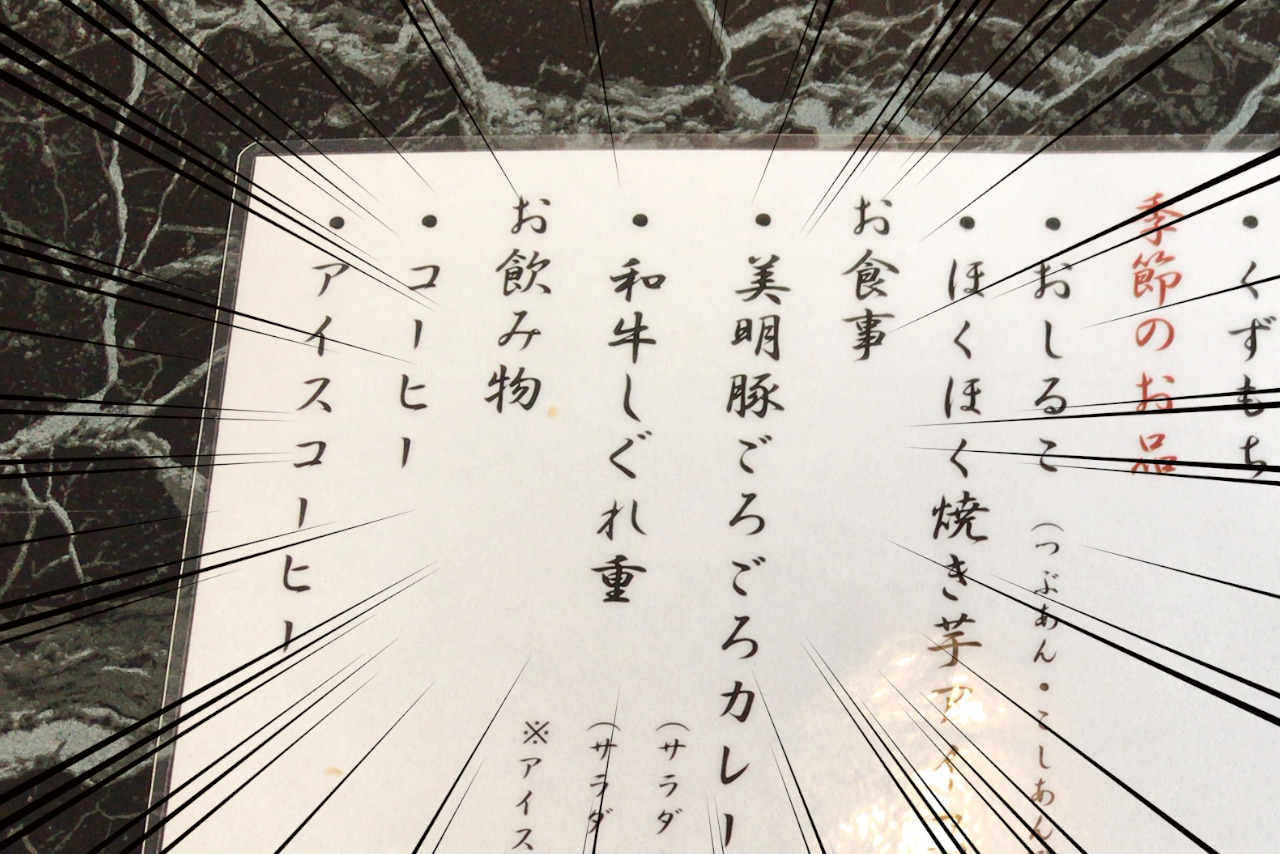 ・くずもち
季節のお品
・おしるこ（つぶあん・こしあん
・ほくほく焼き芋アイ
お食事
・美明豚ごろごろカレー
（サラダ
・和牛しぐれ重
（サラダ
お飲み物
※アイス
・コーヒー
・アイスコーヒー